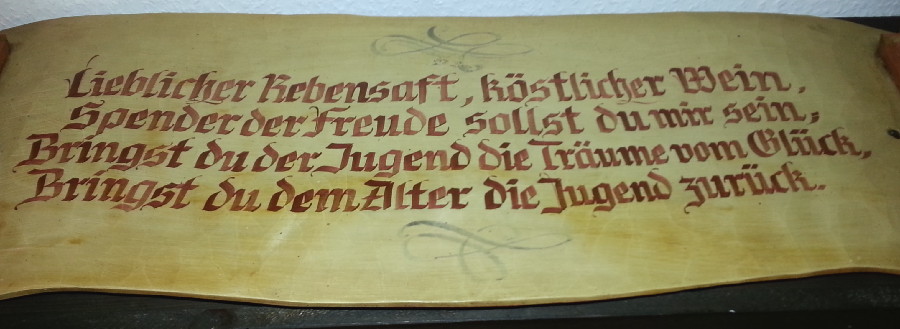 Lieblicher Rebensaft, köstlicher Wein,
Spender der Freude sollst du mir sein,
Bringst du der Jugend die Träume vom Glück,
Bringst du dem Alter die Jugend zurück.